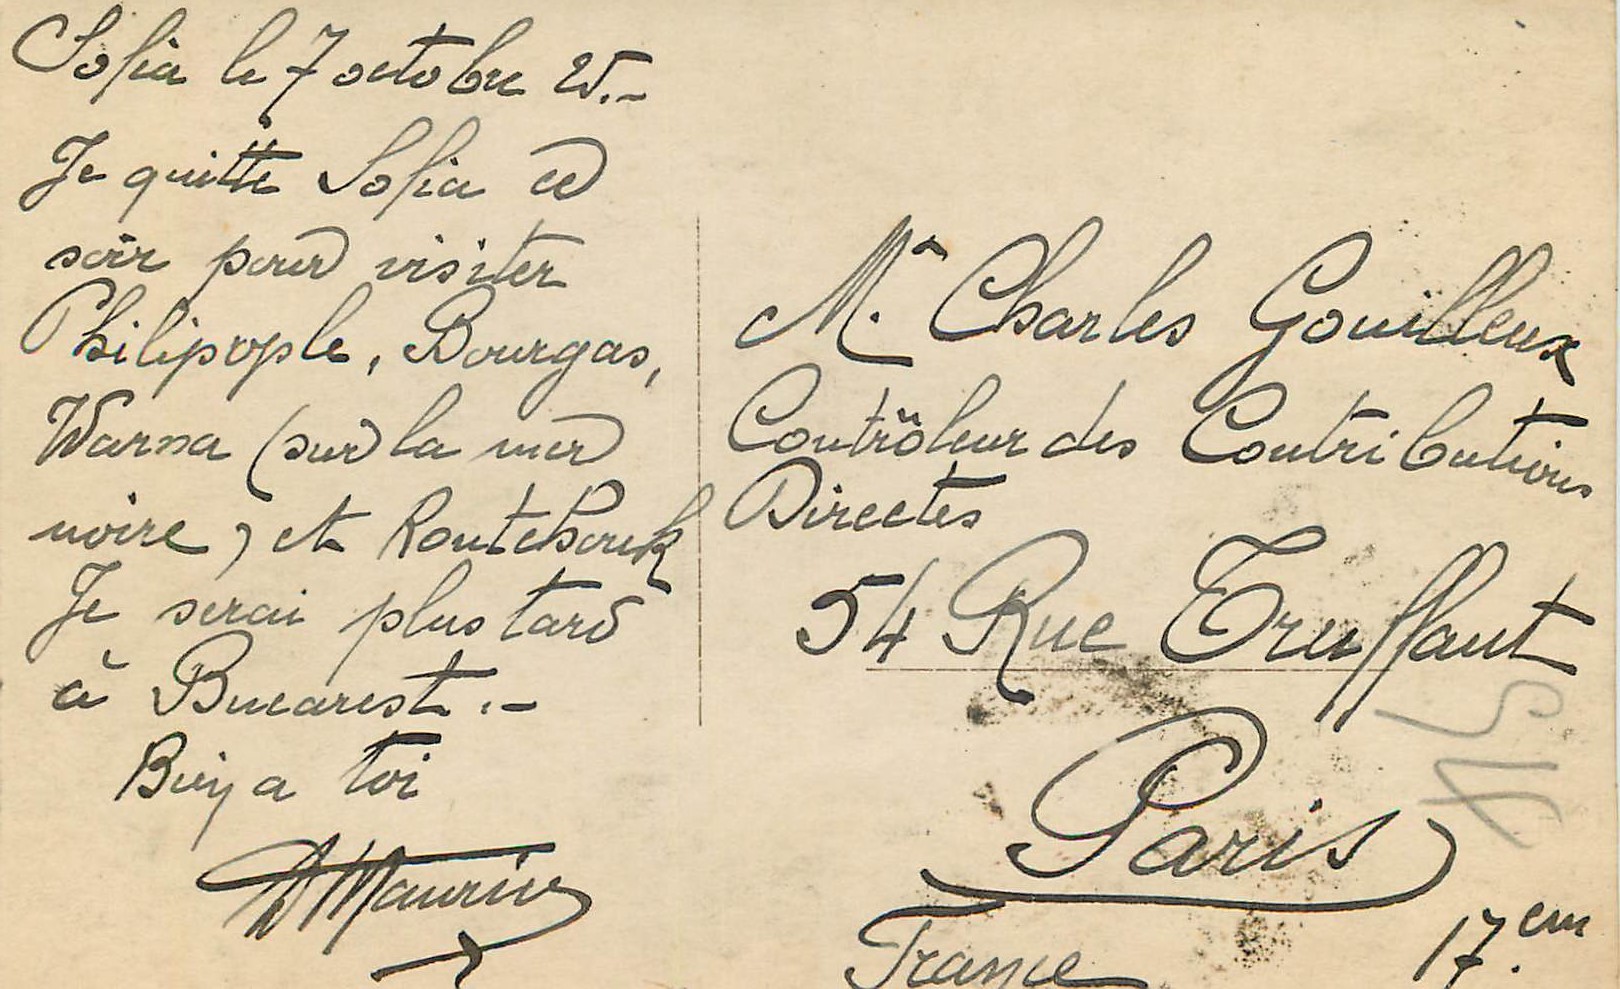 Sofia le 7 octobre 25.-
Je quitte Sofia ce
soir pour visiter
Philipople, Bourgas,
Warna (sur la mer
noire) et Routchouk
Je serai plus tard
à Bucarest.-
Bien a toi
Maurice
Mr Charles Gouilleux
Contrôleur des Contributions
Directes
54 Rue Truffaut
Paris
France 17.em